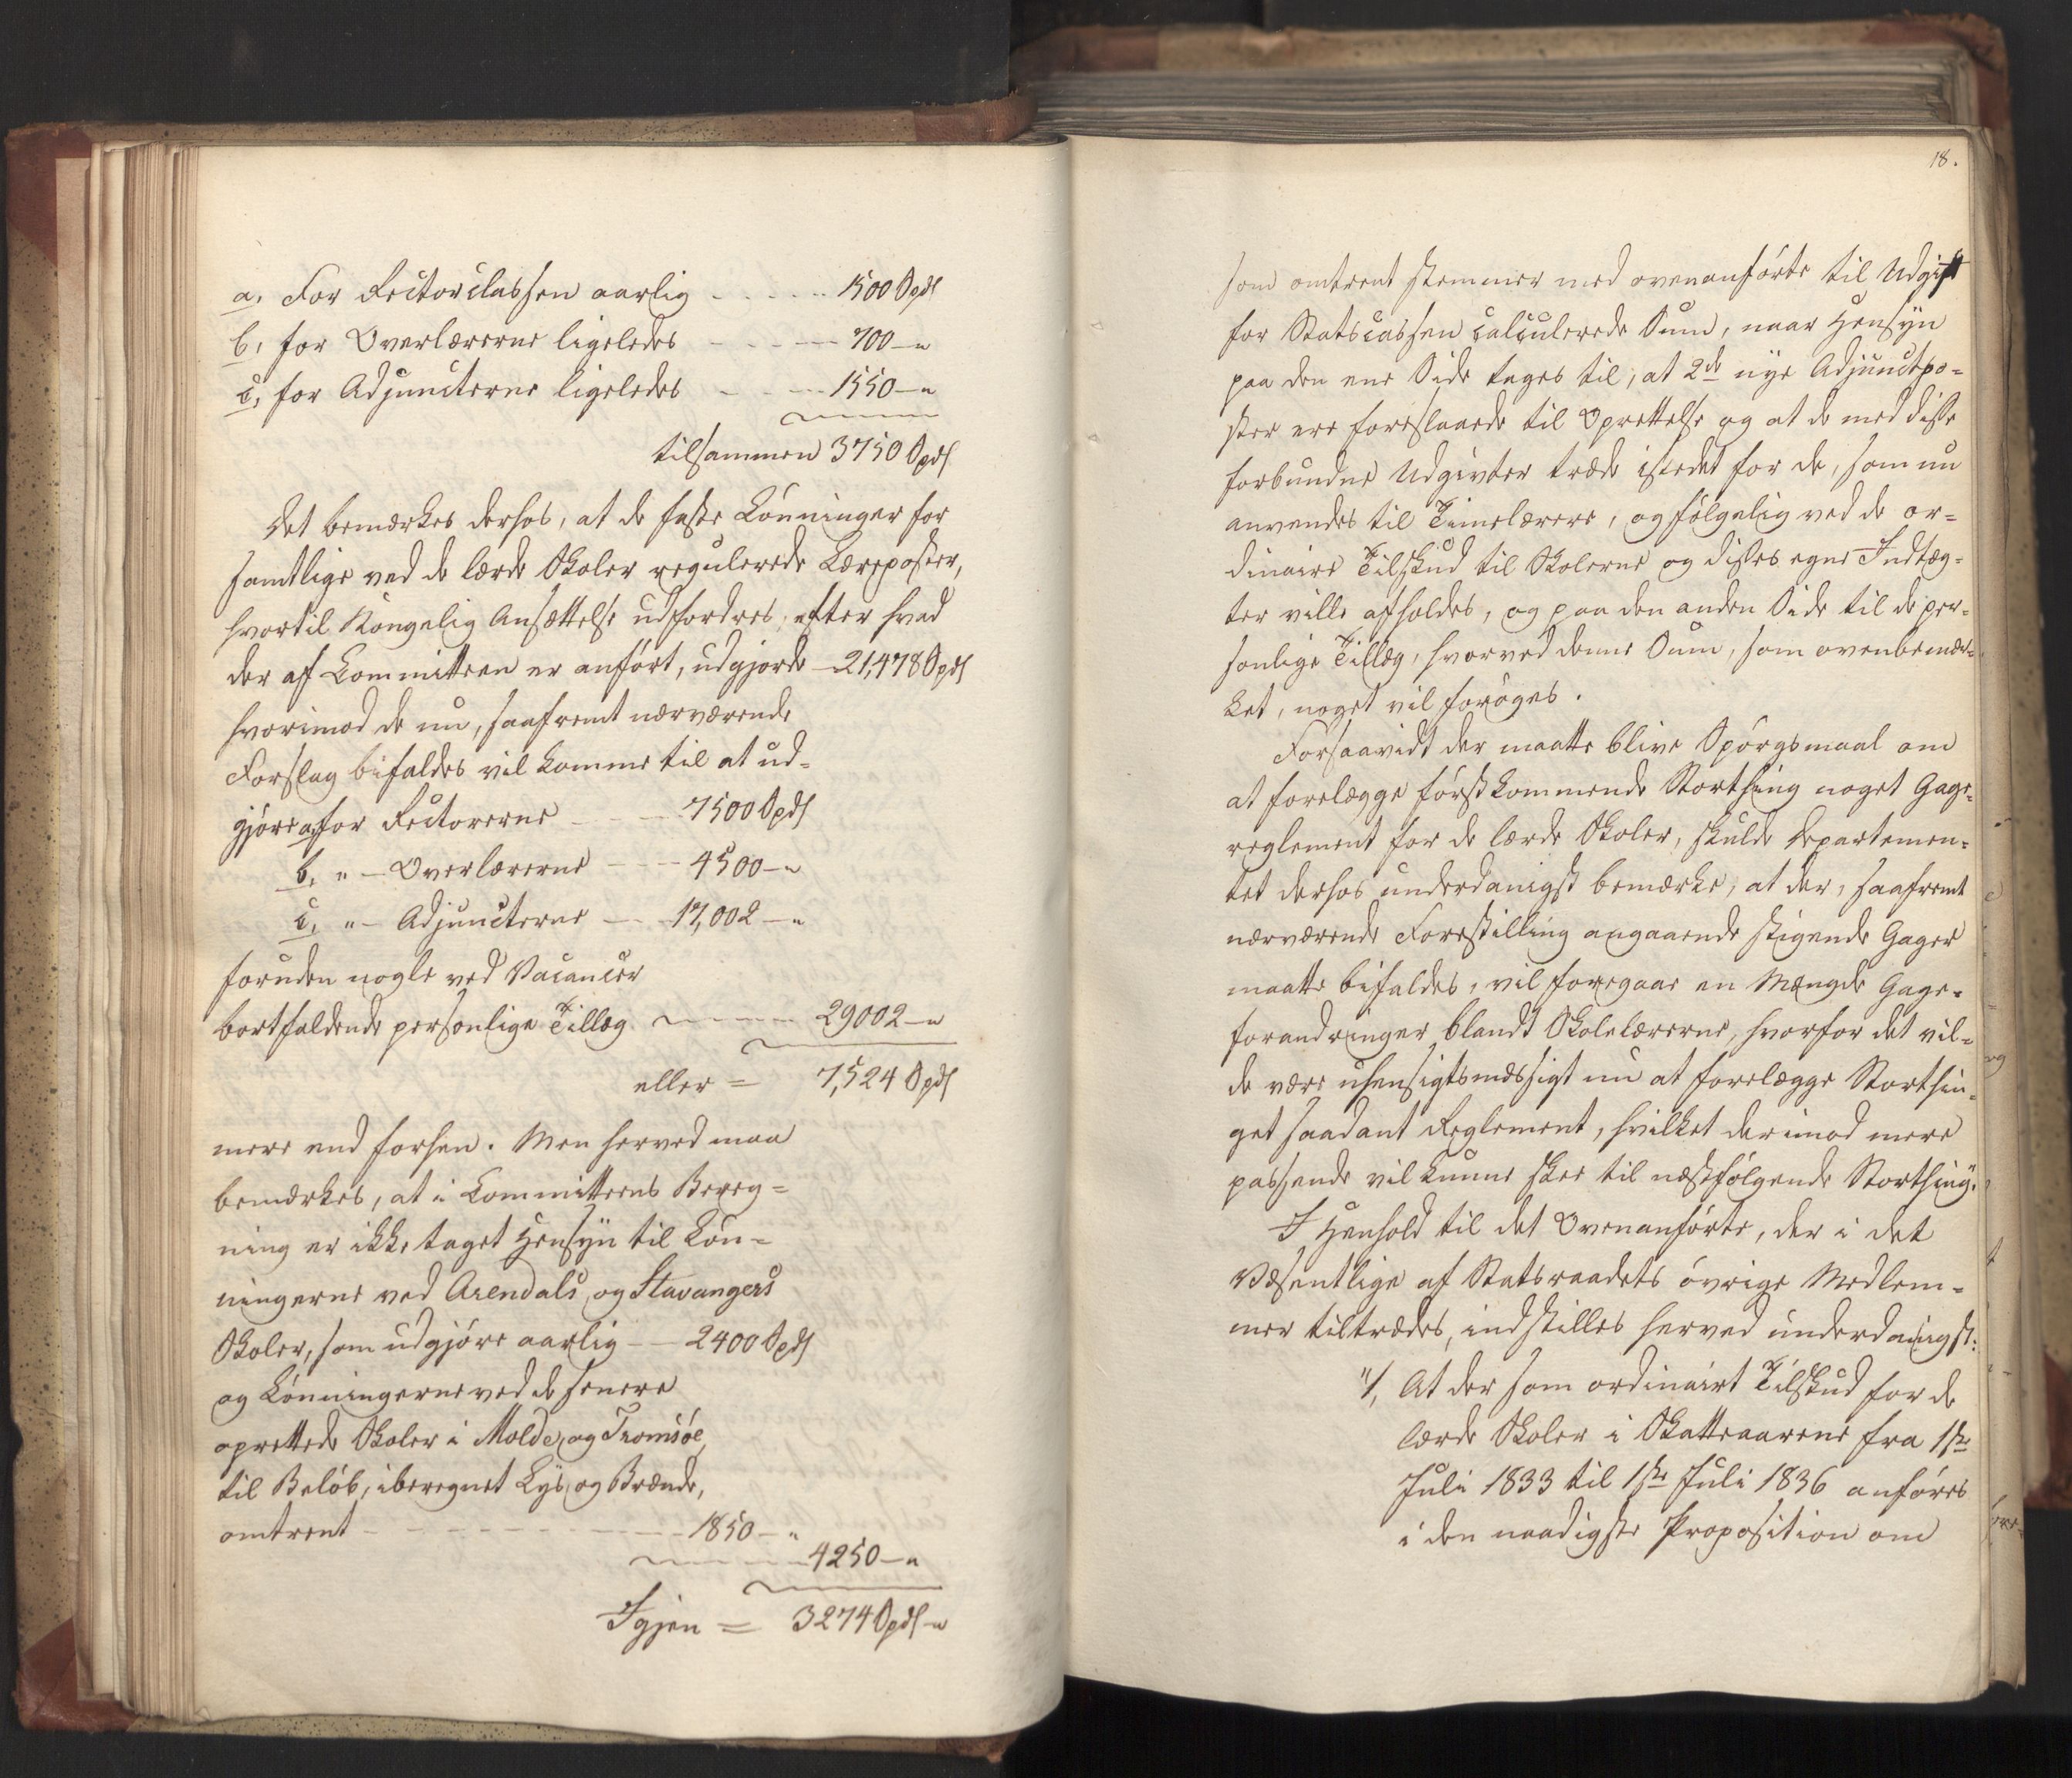 a, For Rectorclassen aarlig - - - - - 1500 Spdl
b, for Overlærerne ligeledes - - - - - 700 — "
c, for Adjuncterne ligeledes - - - - 1550 — "
tilsammen 3750 Spdl
Det bemærkes derhos, at de faste Lønninger for
samtlige ved de lærde Skoler regulerede Læreposter,
hvortil Kongelig Ansættelse udfordres, efter hvad
der af Committeen er anført, udgjorde — 21,478 Spdl
hvorimod de nu, saafremt nærværende
Forslag bifaldes vil komme til at ud-
gjøre a, for Rectorerne - - - - 7500 Spdl
b, " — Overlærerne - - - - 4500 — "
c, " — Adjuncterne - - - 17,002 — "
foruden nogle ved Vacancer
bortfaldende personlige Tillæg - - - - 29002 — "
eller = 7,524 Spdl
mere end forhen. Men herved maa
bemærkes, at i Committeens Bereg=
ning er ikke taget Hensyn til Løn=
ningerne ved Arendals og Stavangers
Skoler, som udgjøre aarlig — — 2400 Spdl
og Lønningerne ved de senere
oprettede Skoler i Molde og Tromsøe
til Beløb, iberegnet Lys og Brænde,
omtrent - - - - - - - - - 1850 — "
4250 — "
Igjen = 3274 Spdl — "
18.
som omtrent stemmer med ovenanførte til Udgift
for Statscassen calculerede Sum, naar Hensyn
paa den ene Side tages til, at 2de nye Adjunctpo=
ster ere foreslaaede til Oprettelse og at de med disse
forbundne Udgivter træde istedet for de, som nu
anvendes til Timelærere, og følgelig ved de or=
dinaire Tilskud til Skolerne og disses egne Indtæg=
ter ville afholdes, og paa den anden Side til de per=
sonlige Tillæg, hvorved denne Sum, som ovenbemær=
ket, noget vil forøges.
Forsaavidt der maatte blive Spørgsmaal om
at forelægge førstkommende Storthing noget Gage=
reglement for de lærde Skoler, skulde Departemen=
tet derhos underdanigst bemærke, at der, saafremt
nærværende Forestilling angaaende stigende Gager
maatte bifaldes, vil foregaae en Mængde Gage=
forandringer blandt Skolelærerne, hvorfor det vil=
de være uhensigtsmæssigt nu at forelægge Storthin=
get saadant Reglement, hvilket derimod mere
passende vil kunne skee til næstfølgende Storthing.
I Henhold til det Ovenanførte, der i det
Væsentlige af Statsraadets øvrige Medlem=
mer tiltrædes, indstilles herved underdanigst:
"1, At der som ordinairt Tilskud for de
lærde Skoler i Skatteaarene fra 1ste
Juli 1833 til 1ste Juli 1836 anføres
i den naadigste Proposition om